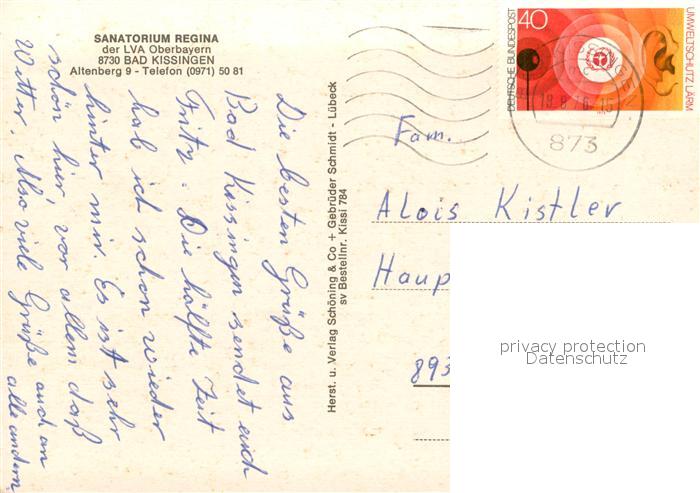 SANATORIUM REGINA
der LVA Oberbayern
8730 BAD KISSINGEN
Altenberg 9 - Telefon (0971) 50 81
Die besten Grüße aus
Bad Kissingen sendet euch
Fritz. Die hälfte Zeit
hab ich schon wieder
hinter mir. Es ist sehr
schön hier, vor allem daß
Witter. Also viele Grüße auch an
alle andern.
Herst. u. Verlag Schöning & Co + Gebrüder Schmidt - Lübeck
sv Bestellnr. Kissi 784
DEUTSCHE BUNDESPOST
40
UMWELTSCHUTZ: LÄRM
873
Fam.
Alois Kistler
Haup
893
privacy protection
Datenschutz